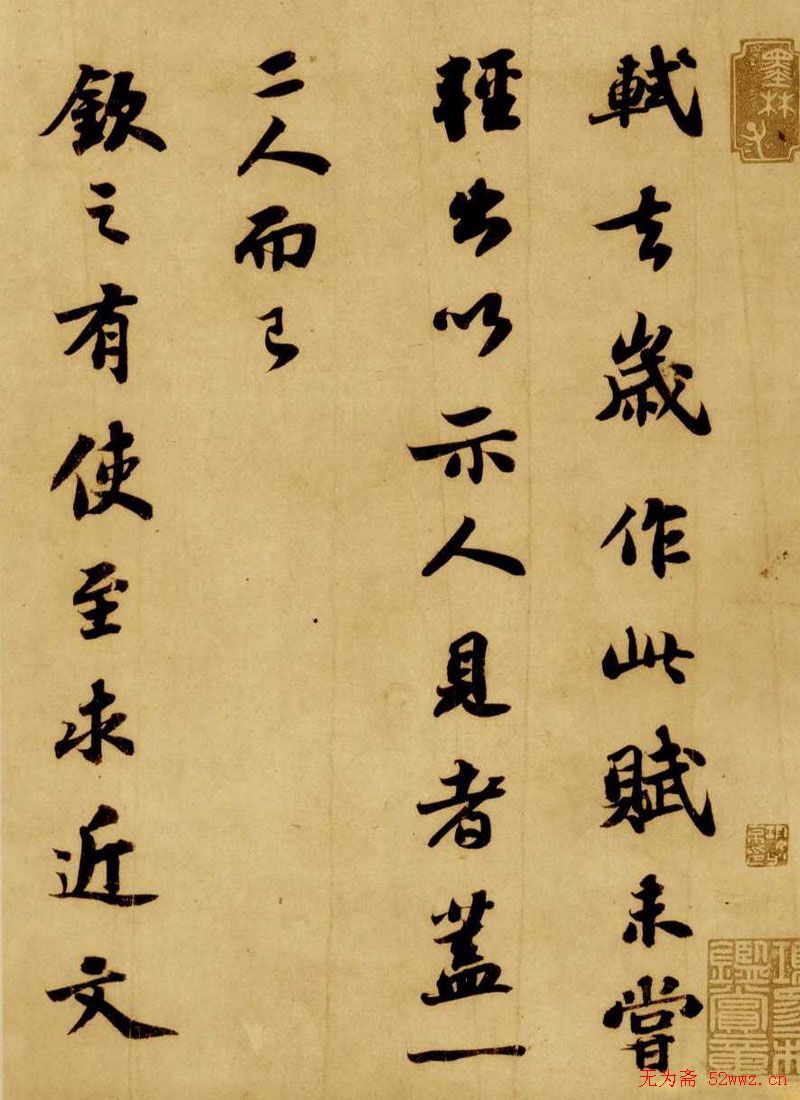 軾去歲作此賦未嘗
輕出以示人見者蓋一
二人而已
欽之有使至求近文
墨林
鑑賞章
无为斋 52wwz.cn